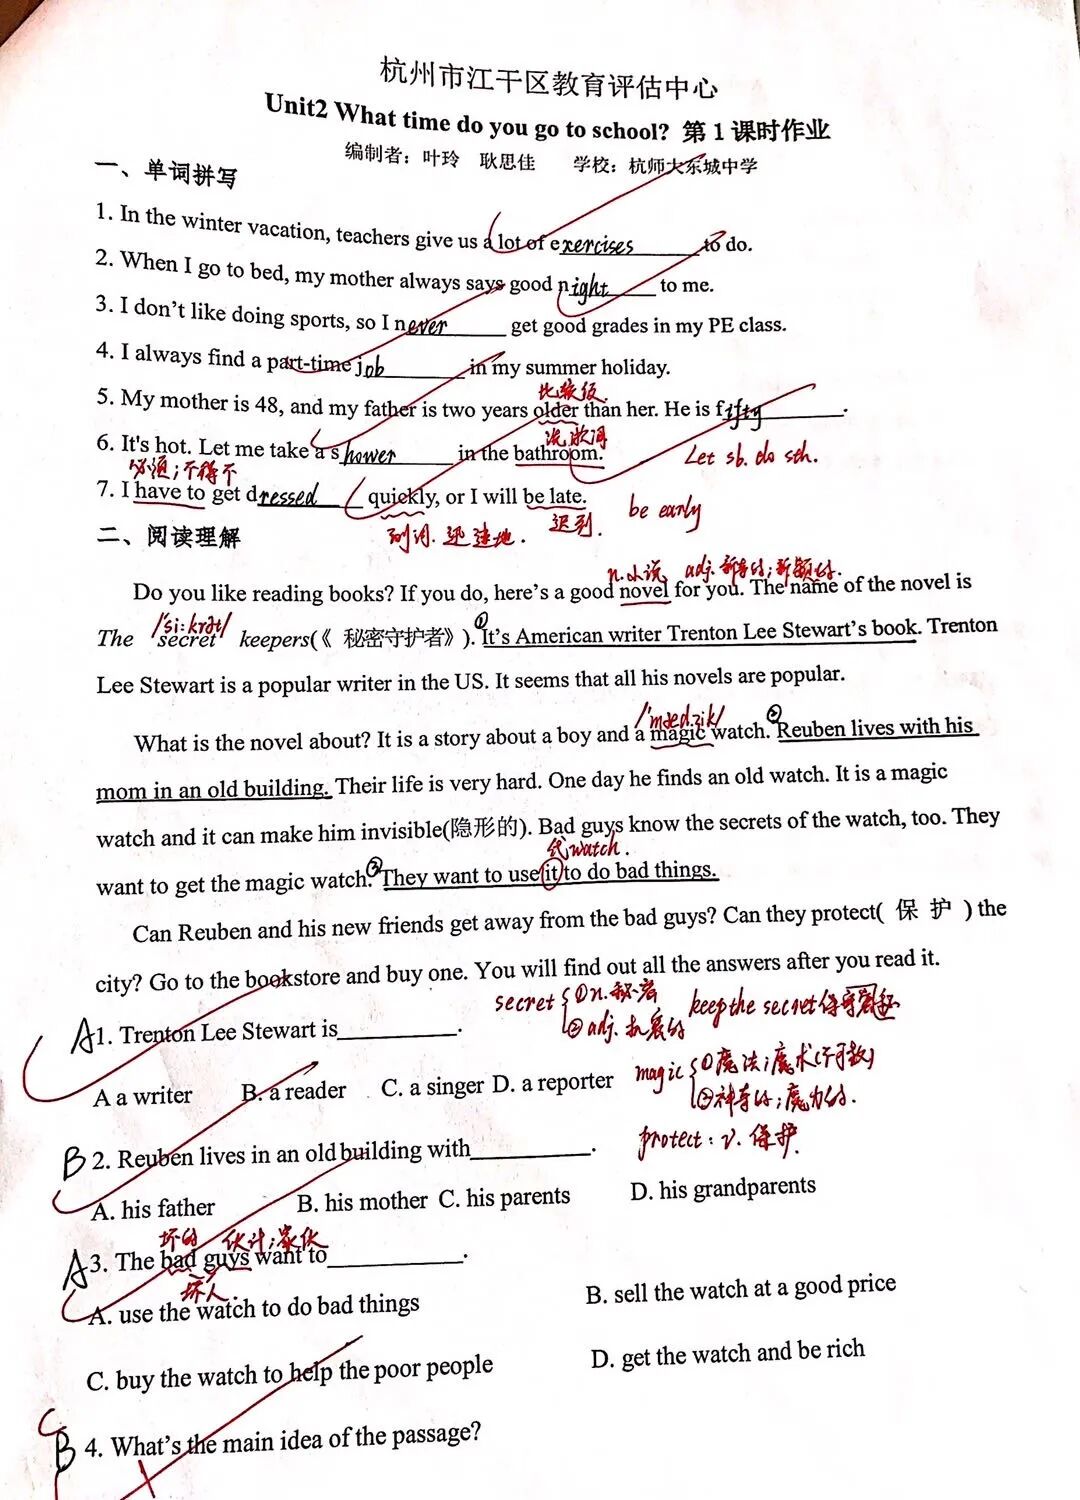 杭州市江干区教育评估中心
Unit2 What time do you go to school? 第 1 课时作业
编制者：叶玲 耿思佳 学校：杭师大东城中学
一、单词拼写
1. In the winter vacation, teachers give us a lot of exercises to do.
2. When I go to bed, my mother always says good night to me.
3. I don't like doing sports, so I never get good grades in my PE class.
4. I always find a part-time job in my summer holiday.
比较级.
5. My mother is 48, and my father is two years older than her. He is fifty.
洗漱间
6. It's hot. Let me take a shower in the bathroom. Let sb. do sth.
必须；不得不
7. I have to get dressed quickly, or I will be late. be early
副词. 迅速地. 迟到.
二、阅读理解
n.小说 adj.新奇的；新颖的.
Do you like reading books? If you do, here's a good novel for you. The name of the novel is
/'si:krət/ ①
The secret keepers(《 秘密守护者》). It's American writer Trenton Lee Stewart's book. Trenton
Lee Stewart is a popular writer in the US. It seems that all his novels are popular.
/'mædʒik/ ②
What is the novel about? It is a story about a boy and a magic watch. Reuben lives with his
mom in an old building. Their life is very hard. One day he finds an old watch. It is a magic
watch and it can make him invisible(隐形的). Bad guys know the secrets of the watch, too. They
代watch.
want to get the magic watch. ③ They want to use it to do bad things.
Can Reuben and his new friends get away from the bad guys? Can they protect( 保 护 ) the
city? Go to the bookstore and buy one. You will find out all the answers after you read it.
secret ①n.秘密 keep the secret
②adj.
A 1. Trenton Lee Stewart is.
magic ①魔法；魔术(不可数)
A a writer B. a reader C. a singer D. a reporter
②神奇的；魔力的.
protect: v. 保护.
B 2. Reuben lives in an old building with.
A. his father B. his mother C. his parents D. his grandparents
坏的 伙计；家伙
A 3. The bad guys want to.
坏人.
A. use the watch to do bad things B. sell the watch at a good price
C. buy the watch to help the poor people D. get the watch and be rich
C
B 4. What's the main idea of the passage?